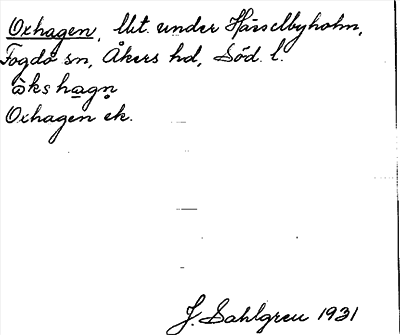 Oxhagen, lht. under Härselbyholm,
Fogdö sn, Åkers hd, Söd. l.
ὼks hagn̥
Oxhagen ek.
J. Sahlgren 1931